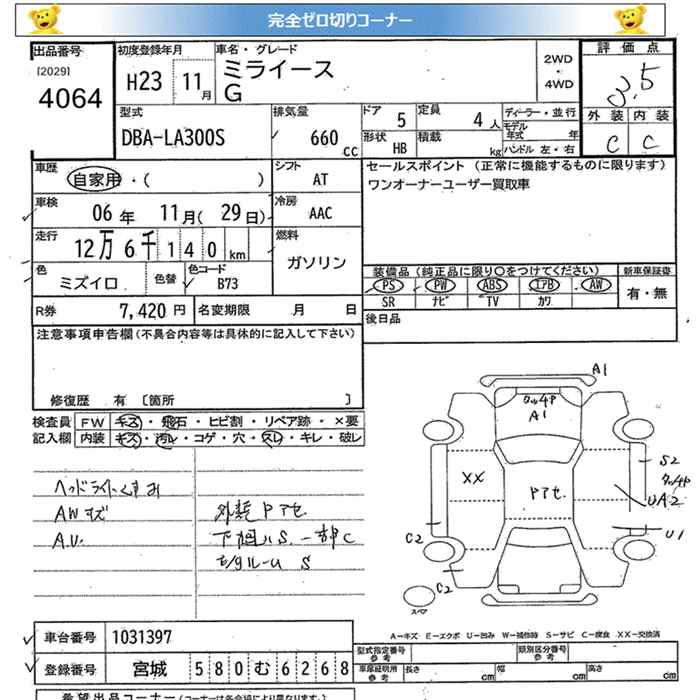 完全ゼロ切りコーナー
出品番号
[2029]
4064
初度登録年月
H23 11月
車名・グレード
ミライース
G
2WD
・
4WD
評価点
3.5
外装 内装
C C
型式
DBA-LA300S
排気量
660 CC
ドア 5
形状 HB
定員 4人
積載 kg
ディーラー・並行
モデル年式 年
ハンドル 左・右
車歴
自家用・( )
車検
06年 11月(29日)
走行
12万6千140km
色
ミズイロ
色替
色コード
B73
シフト
AT
冷房
AAC
燃料
ガソリン
セールスポイント (正常に機能するものに限ります)
ワンオーナーユーザー買取車
装備品(純正品に限り○をつけてください)
新車保証書
PS PW ABS エアB AW
SR ナビ TV カワ
有・無
R券 7,420円
名変期限 月 日
後日品
注意事項申告欄(不具合内容等は具体的に記入して下さい)
修復歴 有 〔箇所 〕
検査員
記入欄
FW キズ・飛石・ヒビ割・リペア跡・×要
内装 キズ・汚レ・コゲ・穴・スレ・キレ・破レ
ヘッドライトくすみ
AWキズ
外装Pアセ
下廻りS 一部C
S
A1
A1
XX
Pアセ
S2
UA2
U1
C2
C2
スペア
A－キズ E－エクボ U－凹み W－補修跡 S－サビ C－腐食 XX－交換済
車台番号 1031397
登録番号 宮城 580む6268
型式指定番号
参考
類別区分番号
参考
車庫証明用
参考
長さ cm 幅 cm 高さ cm
希望出品コーナー